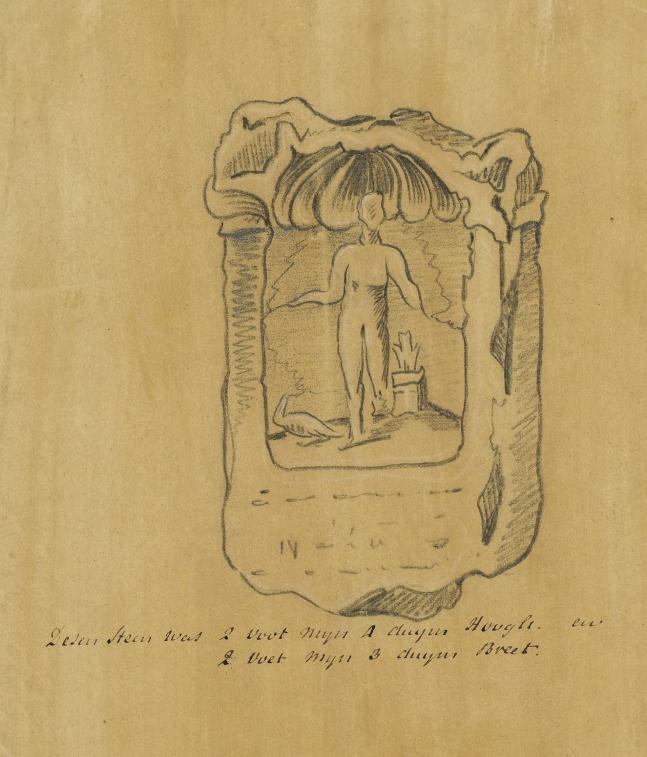 Desen Steen was 2 voet Myn 4 duym Hoogte. en
2 voet Myn 3 duym Breet.